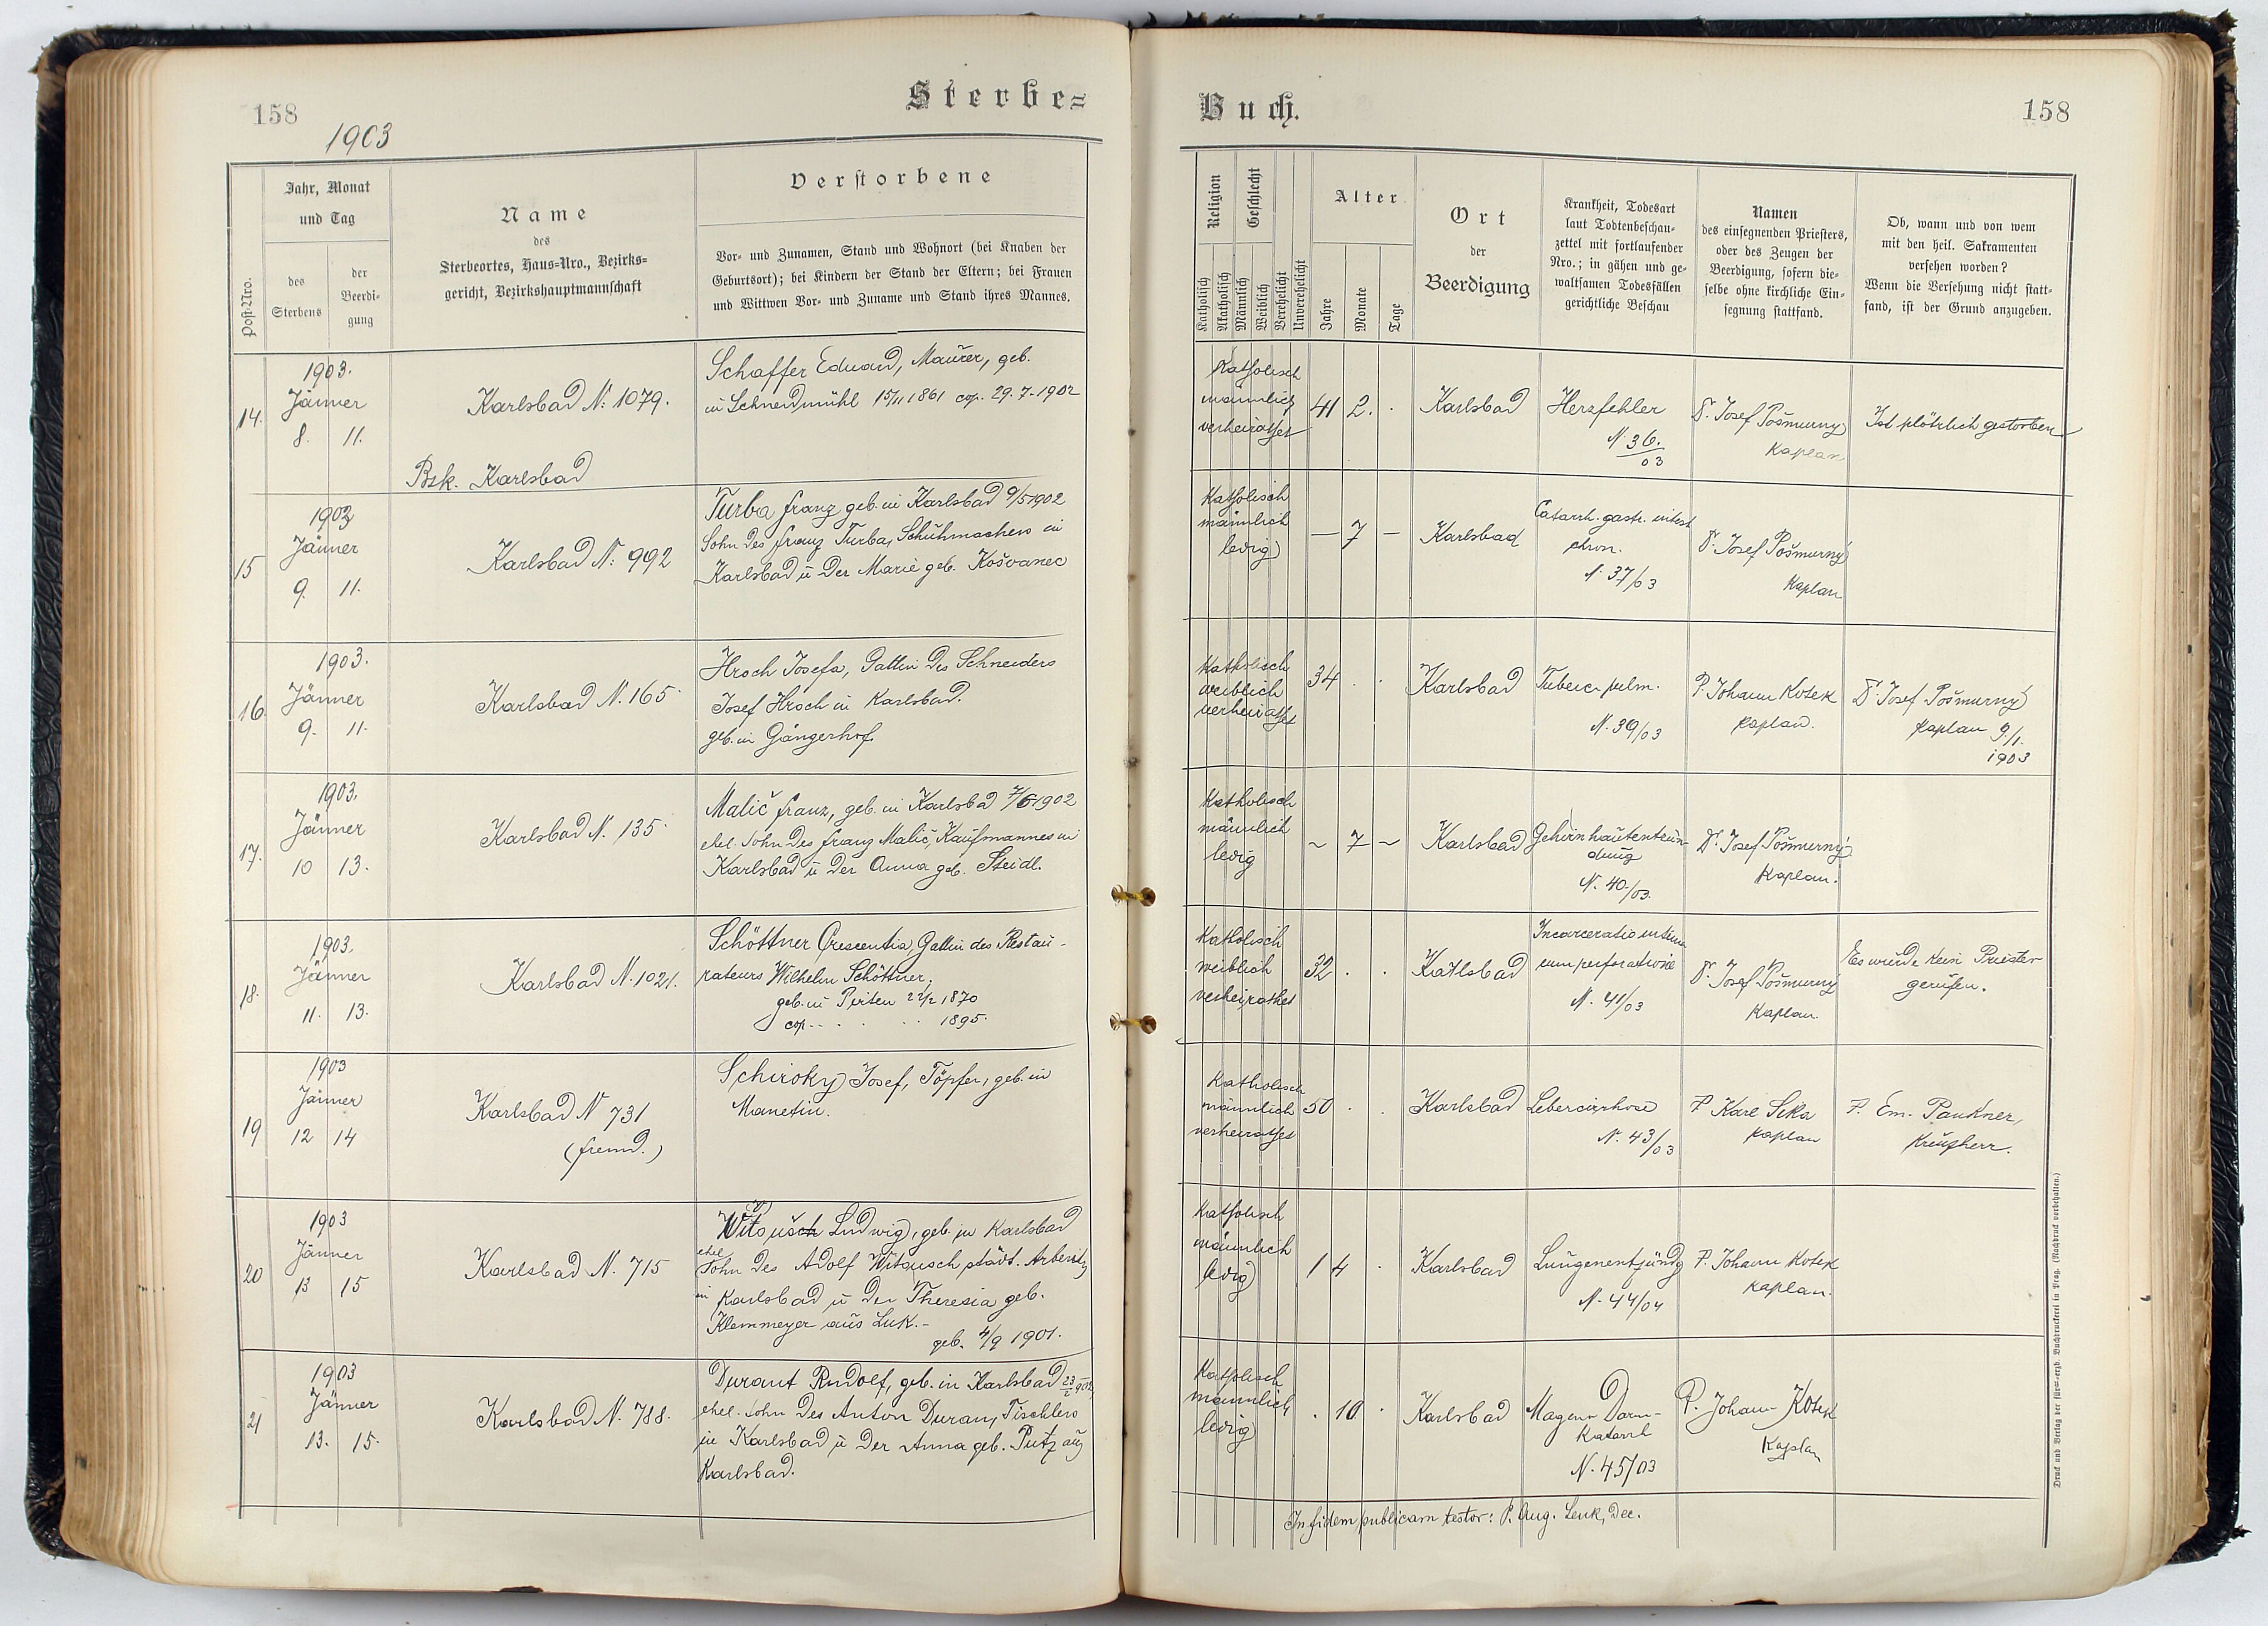 158
Sterbe=
1903
Post-Nro.
Jahr, Monat
und Tag
des
Sterbens
der
Beerdi-
gung
Name
des
Sterbeortes, Haus-Nro., Bezirks-
gericht, Bezirkshauptmannschaft
Verstorbene
Vor- und Zunamen, Stand und Wohnort (bei Knaben der
Geburtsort); bei Kindern der Stand der Eltern; bei Frauen
und Wittwen Vor- und Zuname und Stand ihres Mannes.
14.
1903.
Jänner
8. 11.
Karlsbad N: 1079.
Bzk. Karlsbad
Schaffer Eduard, Maurer, geb.
in Schneidmühl 15/11 1861 cop. 29.7.1902
15
1903
Jänner
9. 11.
Karlsbad N: 992
Turba Franz geb. in Karlsbad 9/5 1902
Sohn des Franz Turba, Schuhmachers in
Karlsbad u der Marie geb. Košvanec
16
1903.
Jänner
9. 11.
Karlsbad N. 165
Hroch Josefa, Gattin des Schneiders
Josef Hroch in Karlsbad.
geb. in Gängerhof.
17.
1903.
Jänner
10 13.
Karlsbad N. 135
Malič Franz, geb. in Karlsbad 7/6 1902
ehel. Sohn des Franz Malič, Kaufmannes in
Karlsbad u der Anna geb. Steidl.
18.
1903.
Jänner
11. 13.
Karlsbad N. 1021.
Schöttner Crescentia, Gattin des Restau-
rateurs Wilhelm Schöttner,
geb. in Pirten 22/2 1870
cop. . . . . 1895.
19
1903
Jänner
12 14
Karlsbad N 731
(fremd.)
Schiroky Josef, Töpfer, geb. in
Manetin.
20
1903
Jänner
13 15
Karlsbad N. 715
Witousch Ludwig, geb. in Karlsbad
ehel.
Sohn des Adolf Witousch städt. Arbeiters
in Karlsbad u der Theresia geb.
Klemmeyer aus Luk.-
geb. 4/9 1901.
21
1903
Jänner
13. 15.
Karlsbad N. 788.
Durant Rudolf, geb. in Karlsbad
ehel. Sohn des Anton Durant, Tischlers
in Karlsbad u der Anna geb. Putz aus
Karlsbad.
Buch.
158
Religion
Geschlecht
Katholisch
Akatholisch
Männlich
Weiblich
Verehelicht
Unverehelicht
Alter
Jahre
Monate
Tage
Ort
der
Beerdigung
Krankheit, Todesart
laut Todtenbeschau-
zettel mit fortlaufender
Nro.; in gähen und ge-
waltsamen Todesfällen
gerichtliche Beschau
Namen
des einsegnenden Priesters,
oder des Zeugen der
Beerdigung, sofern die-
selbe ohne kirchliche Ein-
segnung stattfand.
Ob, wann und von wem
mit den heil. Sakramenten
versehen worden?
Wenn die Versehung nicht statt-
fand, ist der Grund anzugeben.
Katholisch
männlich
verheirathet
41 2. .
Karlsbad
Herzfehler
N 36./03
P. Josef Pošmurny
Kaplan
Ist plötzlich gestorben
Katholisch
männlich
ledig
— 7 —
Karlsbad
Catarrh. gastr. intest.
chron.
N. 37/03
P. Josef Pošmurný
Kaplan
Katholisch
weiblich
verheirathet
34 . .
Karlsbad
Tuberc. pulm.
N. 39/03
P. Johann Kotek
Kaplan.
P. Josef Pošmurný
Kaplan 9/1.
1903
Katholisch
männlich
ledig
~ 7 ~
Karlsbad
Gehirnhautentzün-
dung
N. 40/03.
P. Josef Pošmurný
Kaplan.
Katholisch
weiblich
verheirathet
32 . .
Karlsbad
Incarceratio interna
cum perforatione
N. 41/03
P. Josef Pošmurný
Kaplan.
Es wurde kein Priester
gerufen.
Katholisch
männlich
verheirathet
50 . .
Karlsbad
Lebercirrhose
N. 43/03
P Karl Sika
Kaplan
P. Em. Paukner,
Kreuzherr.
Katholisch
männlich
ledig
1 4 .
Karlsbad
Lungenentzündg
N. 44/04
P. Johann Kotek
Kaplan.
Katholisch
männlich
ledig
. 10 .
Karlsbad
Magen Darm-
Katarrh
N. 45/03
P. Johann Kotek
Kaplan
In fidem publicam testor: P. Aug. Lenk, Dec.
Druck und Verlag der fürst-erzb. Buchdruckerei in Prag. (Nachdruck vorbehalten.)